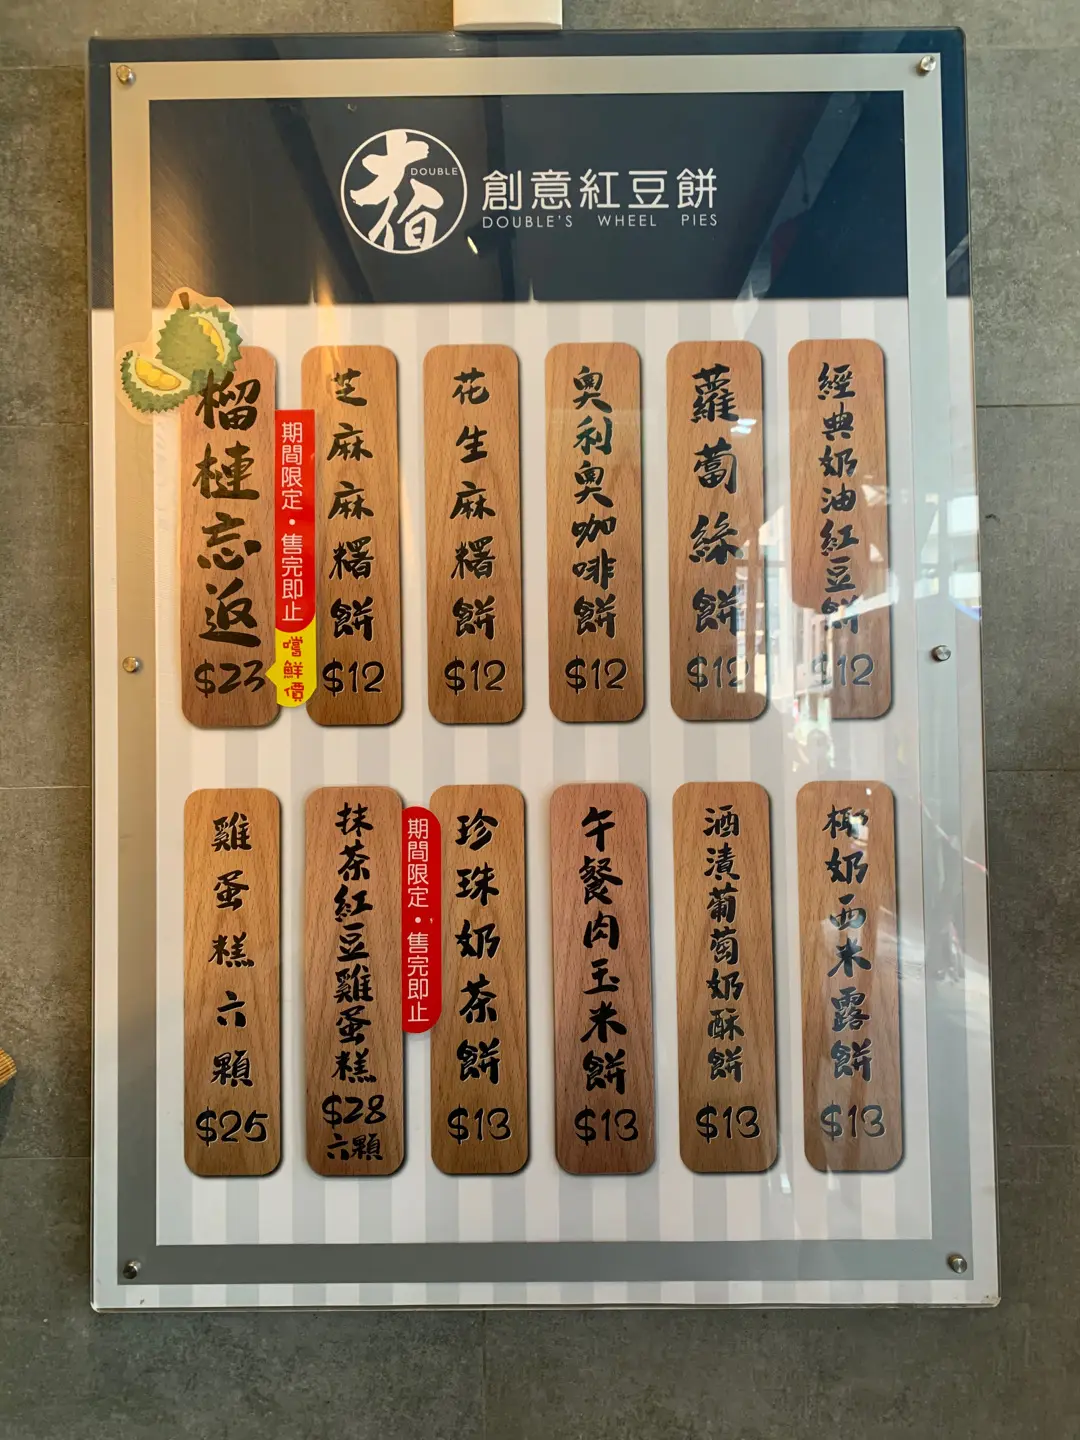 大佰
DOUBLE
創意紅豆餅
DOUBLE'S WHEEL PIES
經典奶油紅豆餅
$12
蘿蔔絲餅
$12
奧利奧咖啡餅
$12
花生麻糬餅
$12
芝麻麻糬餅
$12
期間限定・售完即止
嚐鮮價
榴槤忘返
$23
椰奶西米露餅
$13
酒漬葡萄奶酥餅
$13
午餐肉玉米餅
$13
珍珠奶茶餅
$13
期間限定・售完即止
抹茶紅豆雞蛋糕
$28
六顆
雞蛋糕六顆
$25